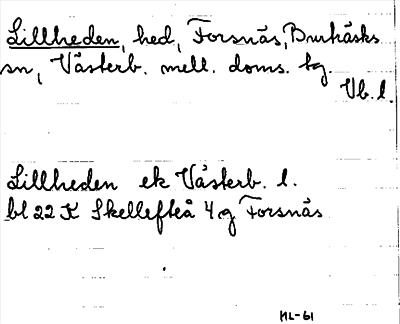 Lillheden, hed, Forsnäs, Burträsks
sn, Västerb. mell. doms. tg.
Vb. l.
Lillheden ek Västerb. l.
bl 22 K Skellefteå 4 g Forsnäs
HL-61